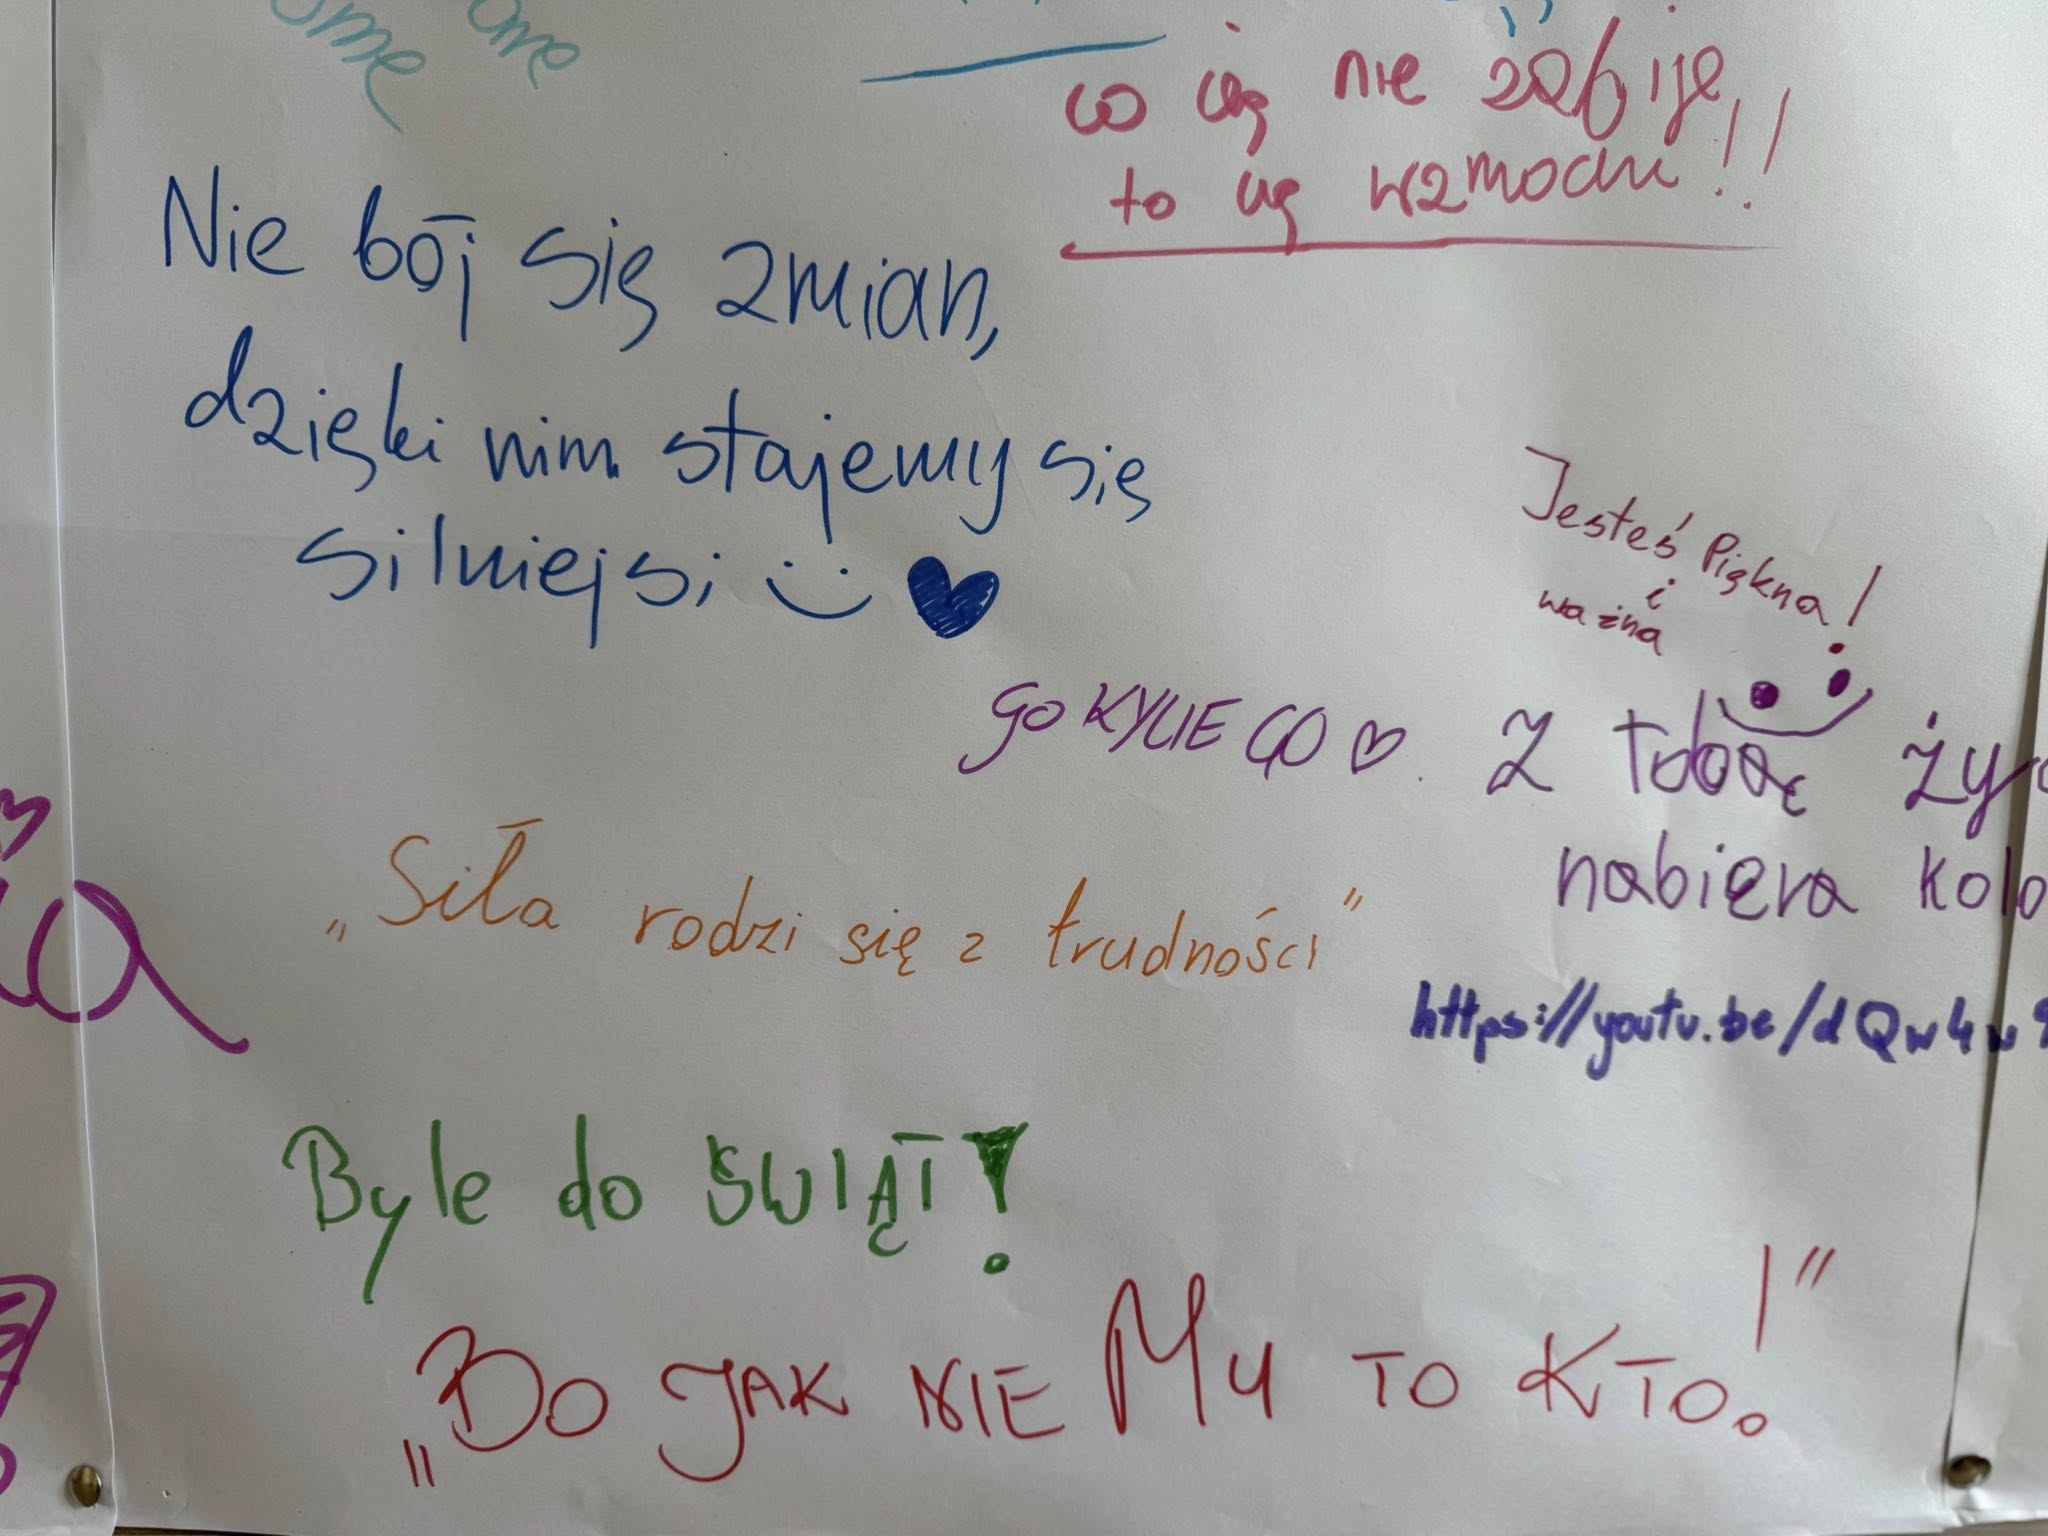 co cię nie zabije
to cię wzmocni!!
Nie bój się zmian,
dzięki nim stajemy się
silniejsi
Jesteś Piękna!
i
ważna
GO KYLIE GO
Z tobą
nabiera
„Siła rodzi się z trudności”
https://youtu.be/dQw4w
Byle do ŚWIĄT!
„BO JAK NIE MY TO KTO!”